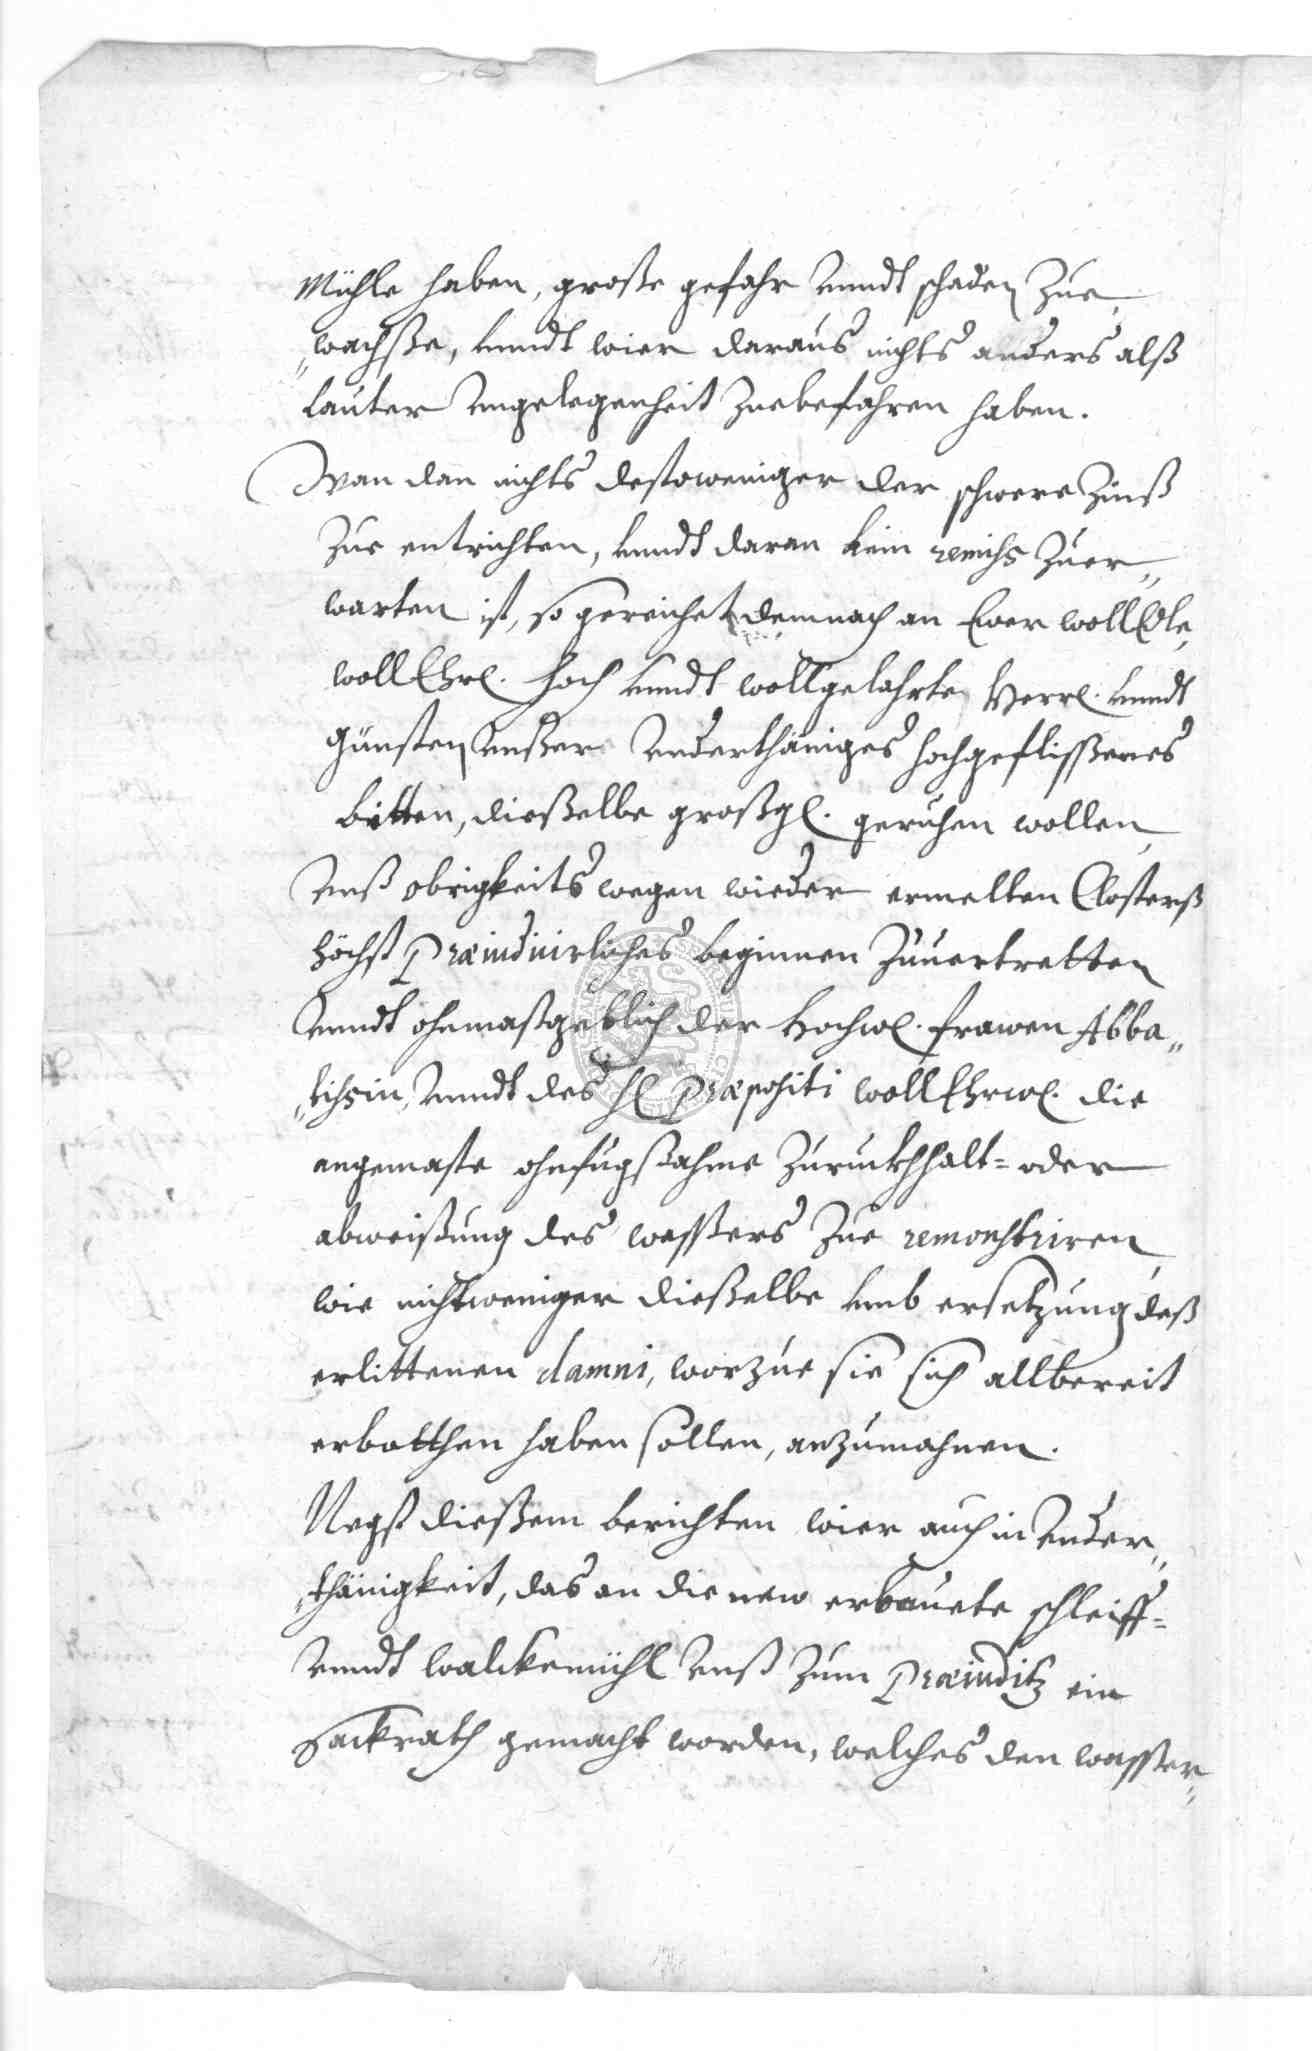 Mühle haben, große gefahr vnndt schaden Zue„
„wachße, vnndt wier daraus nichts anders alß
lauter vngelegenheit Zuebefahren haben.
Wan dan nichts destoweniger der schwere Zinß
Zue entrichten, vnndt daran kein remiss Zuer„
warten ist, so gereichet demnach an Ewer wollEdle,
wollEhrl. hoch vnndt wollgelahrte Herrl. vnndt
günsten vnßer vnderthäniges hochgeflißenes
bitten, dießelbe großgl. geruhen wollen,
vnß obrigkeits wegen wieder ermelten Closterß
höchst Præiudicirliches beginnen Zuuertretten
vnndt ohnmaßgeblich der Hochw. frawen Abba„
„tissin, vnndt des H Præpositi wollEhrw. die
angemaste ohnfugsahme Zuruckhhalt- oder
abweißung des waßers Zue remonstriren
wie nichtweniger dießelbe vmb ersetzung deß
erlittenen damni, worzue sie sich allbereit
erbotthen haben sollen, anzumahnen.
Negst dießem berichten wier auch in vnder„
„thänigkeit, das an die new erbauete schleiff-
vnndt walckemühl vnß zum Præiuditz ein
Sackrath gemacht worden, welches den waßer„